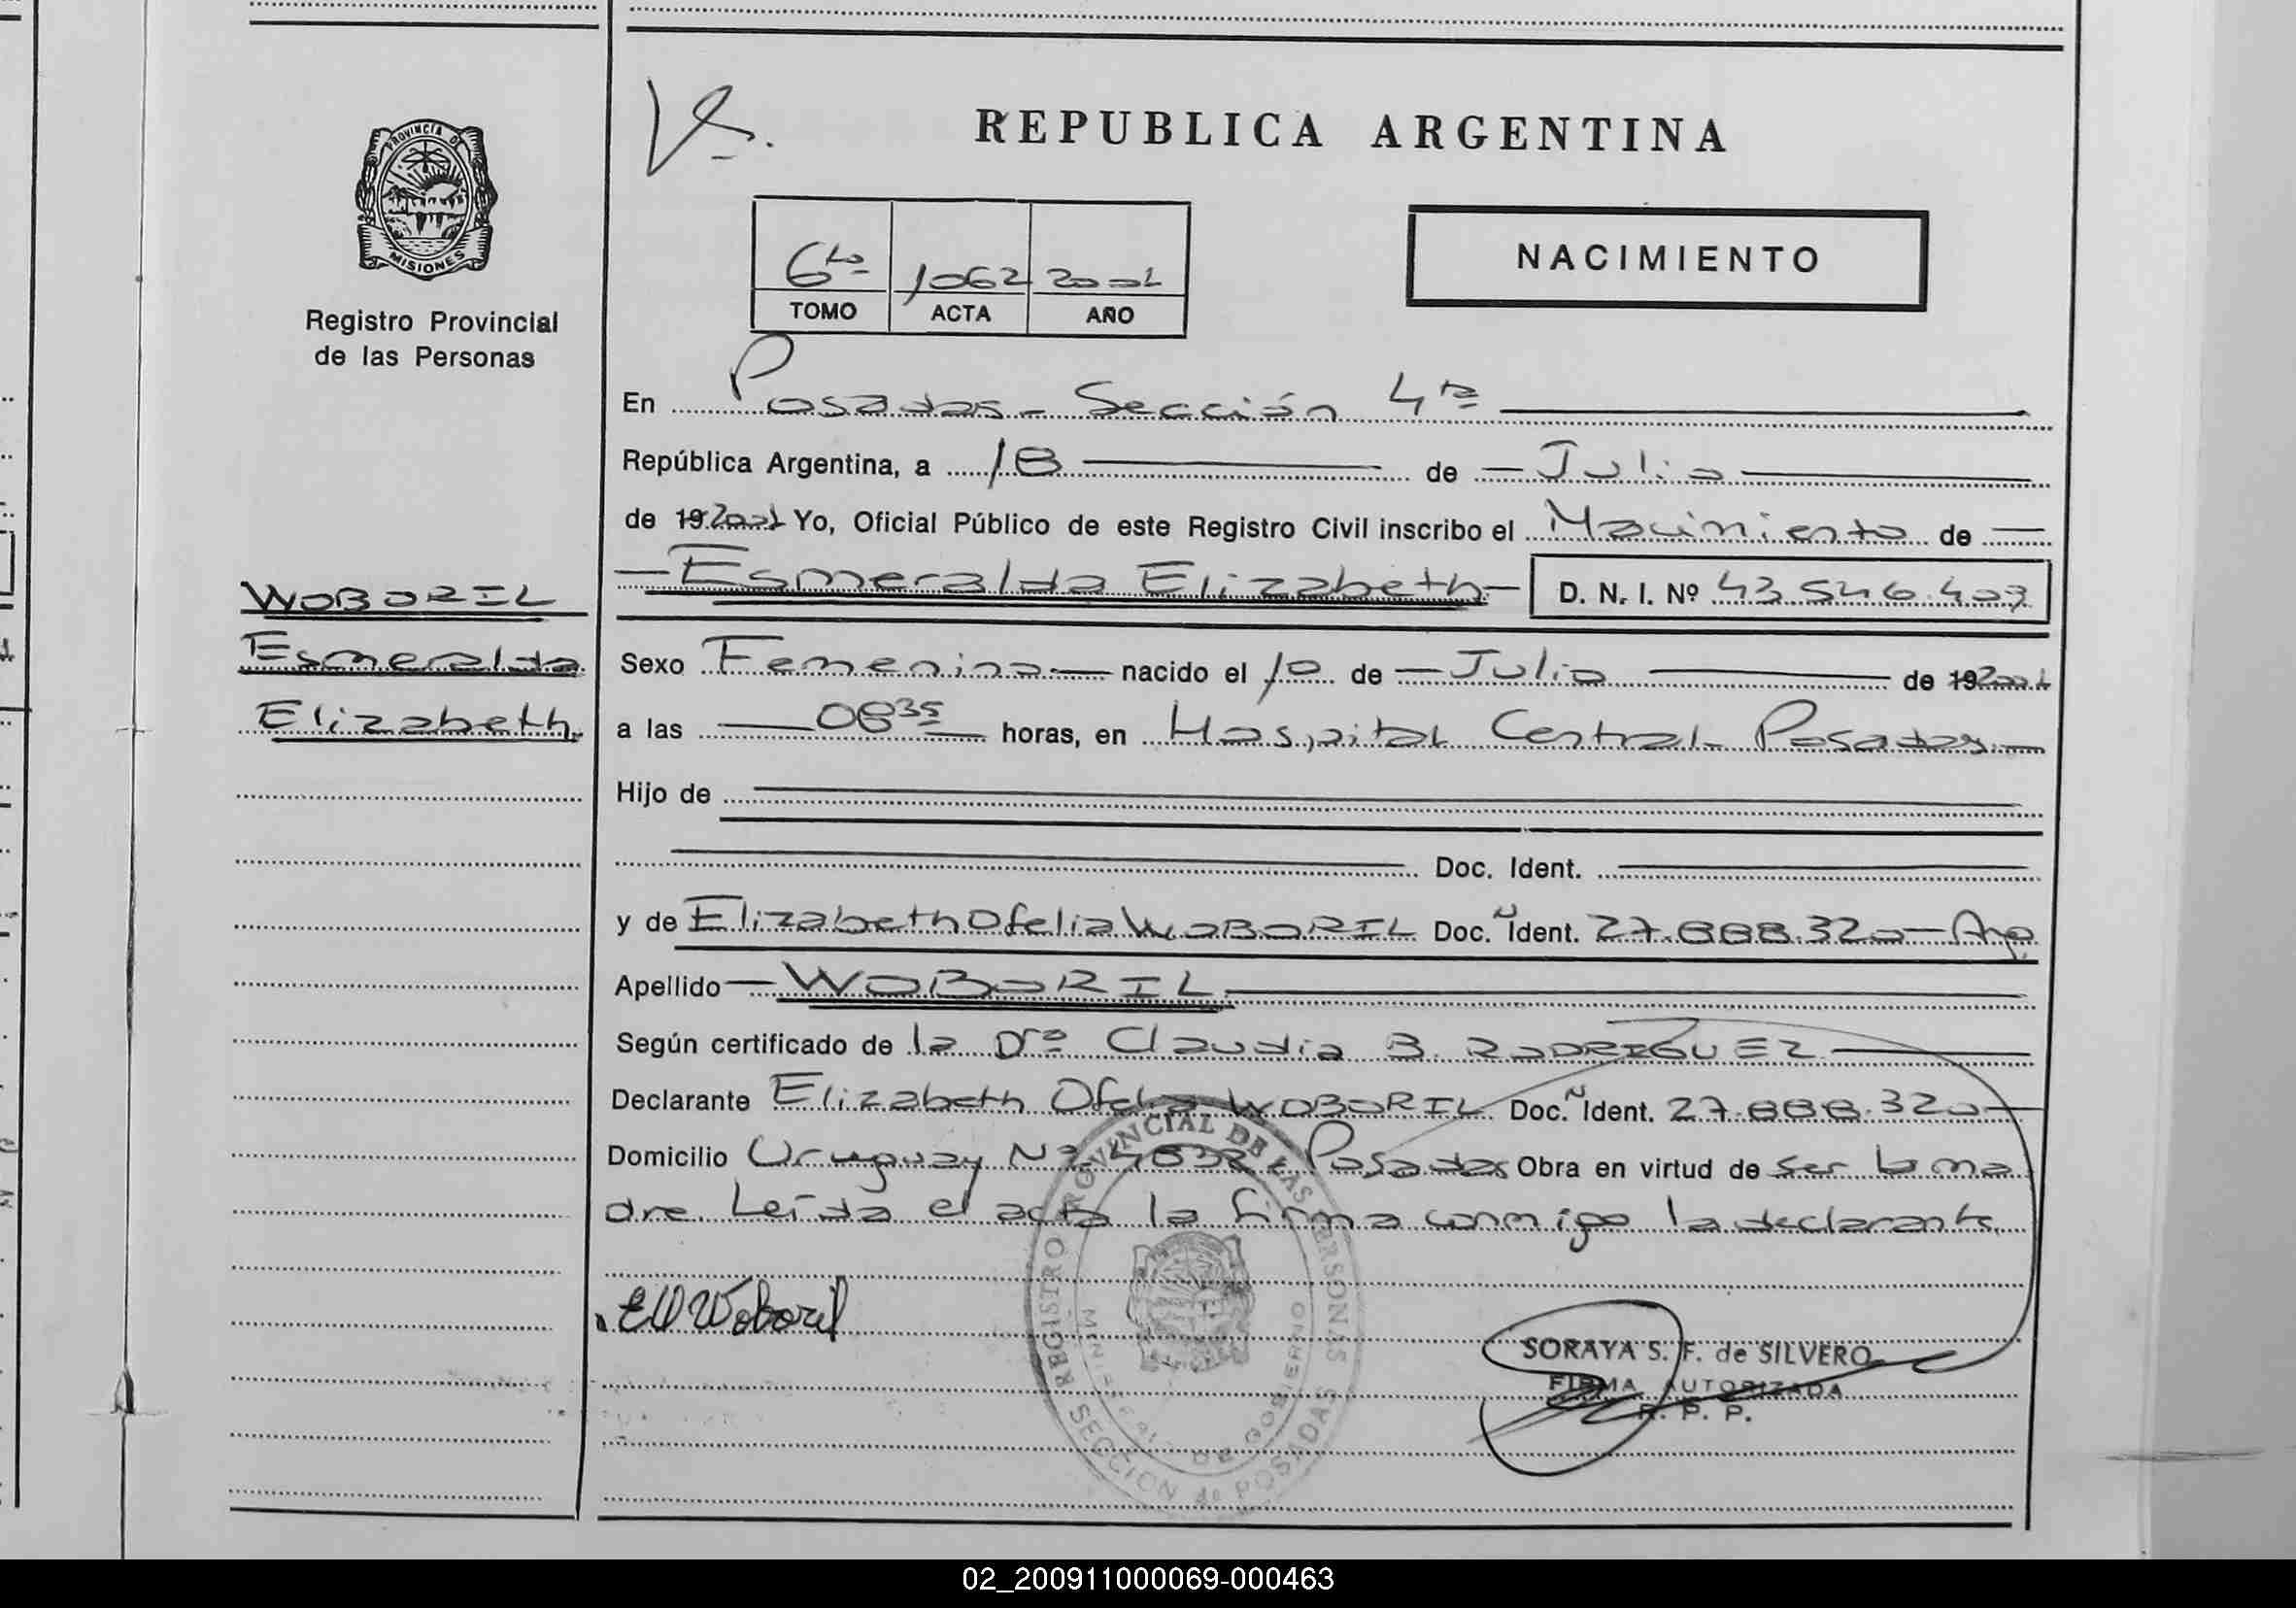 REPUBLICA ARGENTINA
PROVINCIA DE
MISIONES
Registro Provincial
de las Personas
6to 1062 2001
TOMO ACTA AÑO
NACIMIENTO
En Posadas - Sección 4ta
República Argentina, a 18 de Julio
de 19 2001 Yo, Oficial Público de este Registro Civil inscribo el Nacimiento de
Esmeralda Elizabeth D. N. I. Nº 43.546.403
WOBORIL
Esmeralda
Elizabeth
Sexo Femenino nacido el 10 de Julio de 19 2001
a las 08 35 horas, en Hospital Central - Posadas
Hijo de
Doc. Ident.
y de Elizabeth Ofelia WOBORIL Doc. Ident. 27.888.320 - Arg.
Apellido WOBORIL
Según certificado de la Dra Claudia B. RODRIGUEZ
Declarante Elizabeth Ofelia WOBORIL Doc. Ident. 27.888.320
Domicilio Uruguay Nº Posadas Obra en virtud de ser la ma
dre. Leída el acta la firma conmigo la declarante
REGISTRO PROVINCIAL DE LAS PERSONAS
MINISTERIO DE GOBIERNO
SECCION 4ª POSADAS
EO Woboril
SORAYA S. F. de SILVERO
FIRMA AUTORIZADA
R. P. P.
02_200911000069-000463